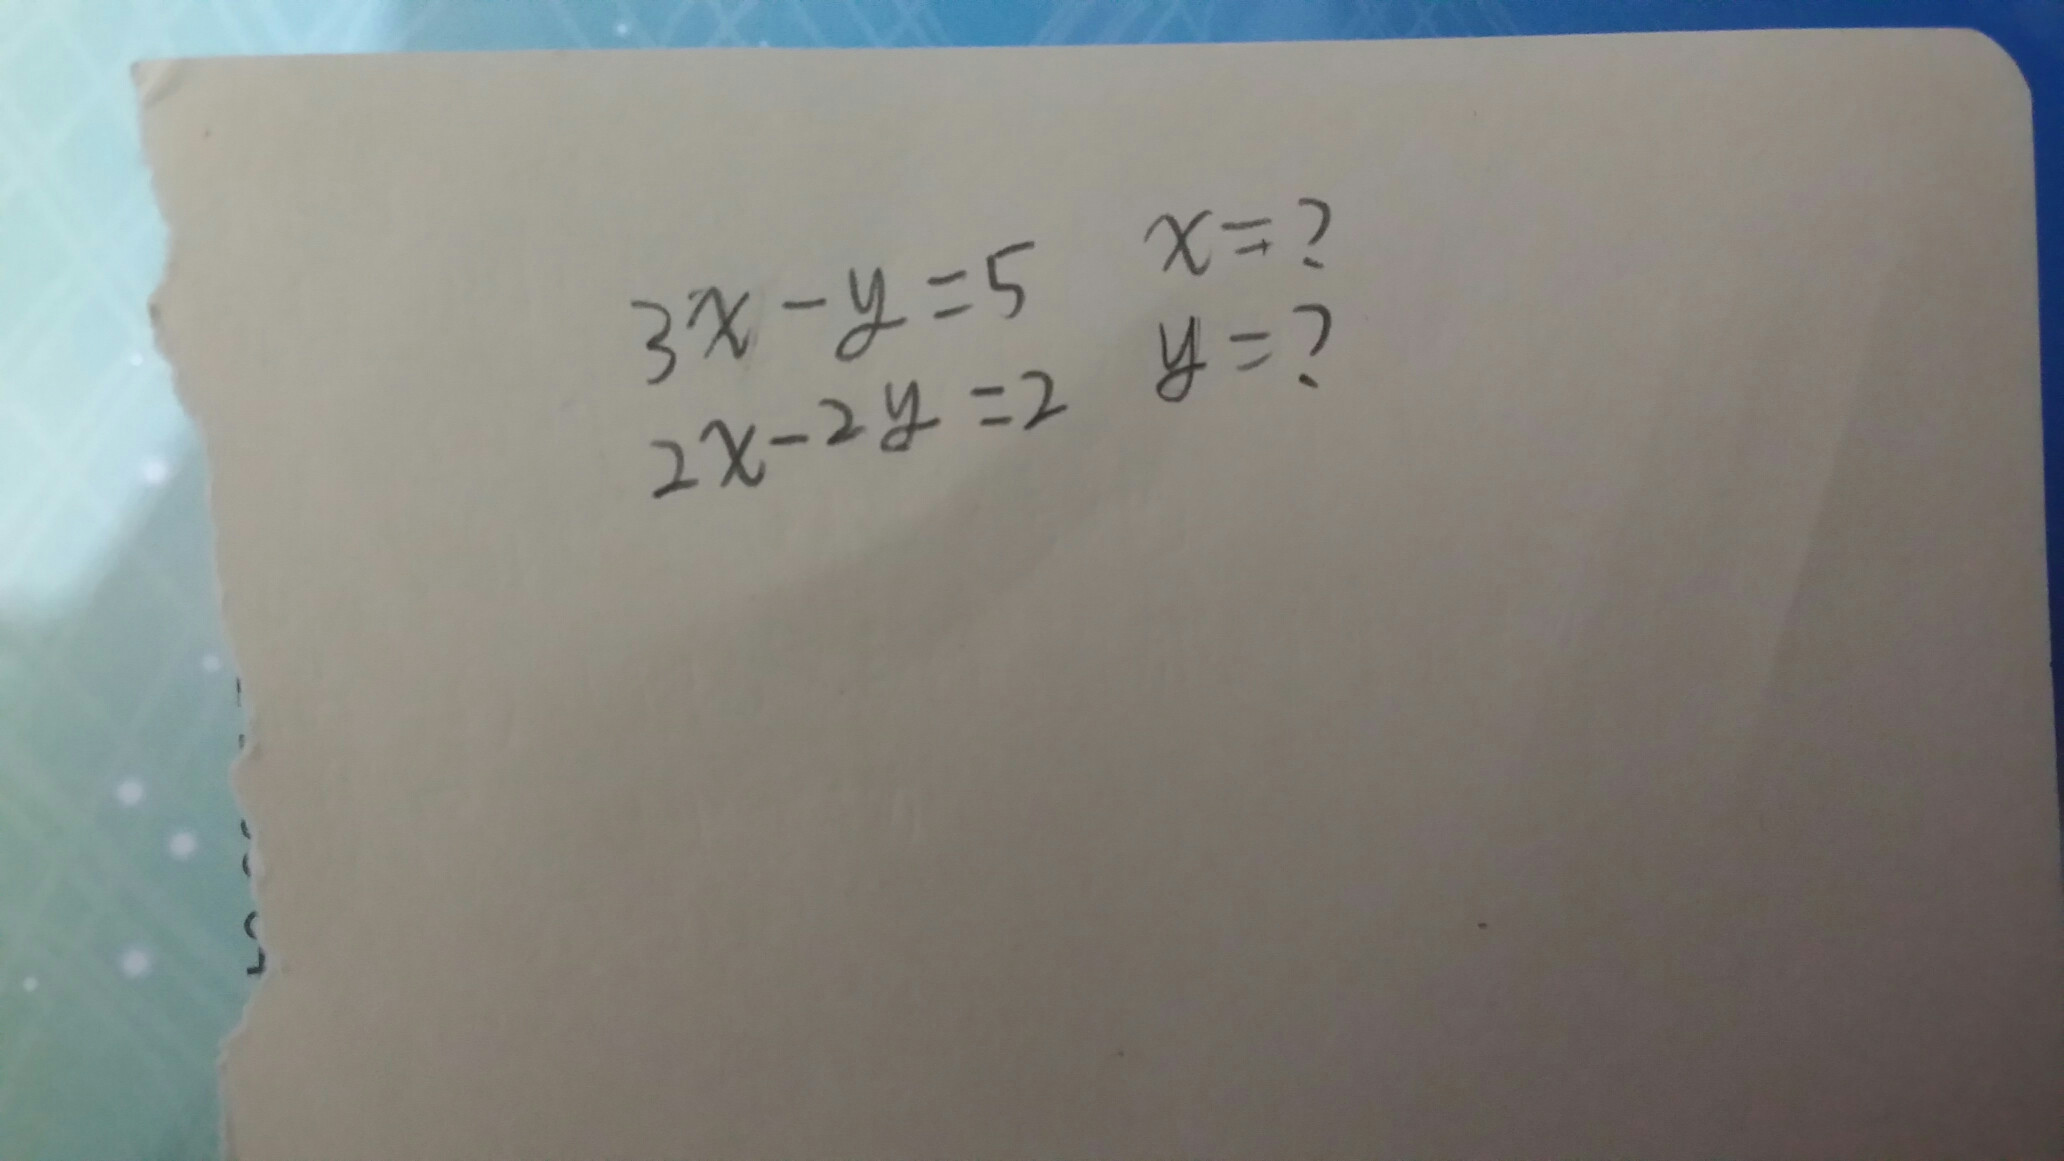 3x-y=5 x=?
2x-2y=2 y=?